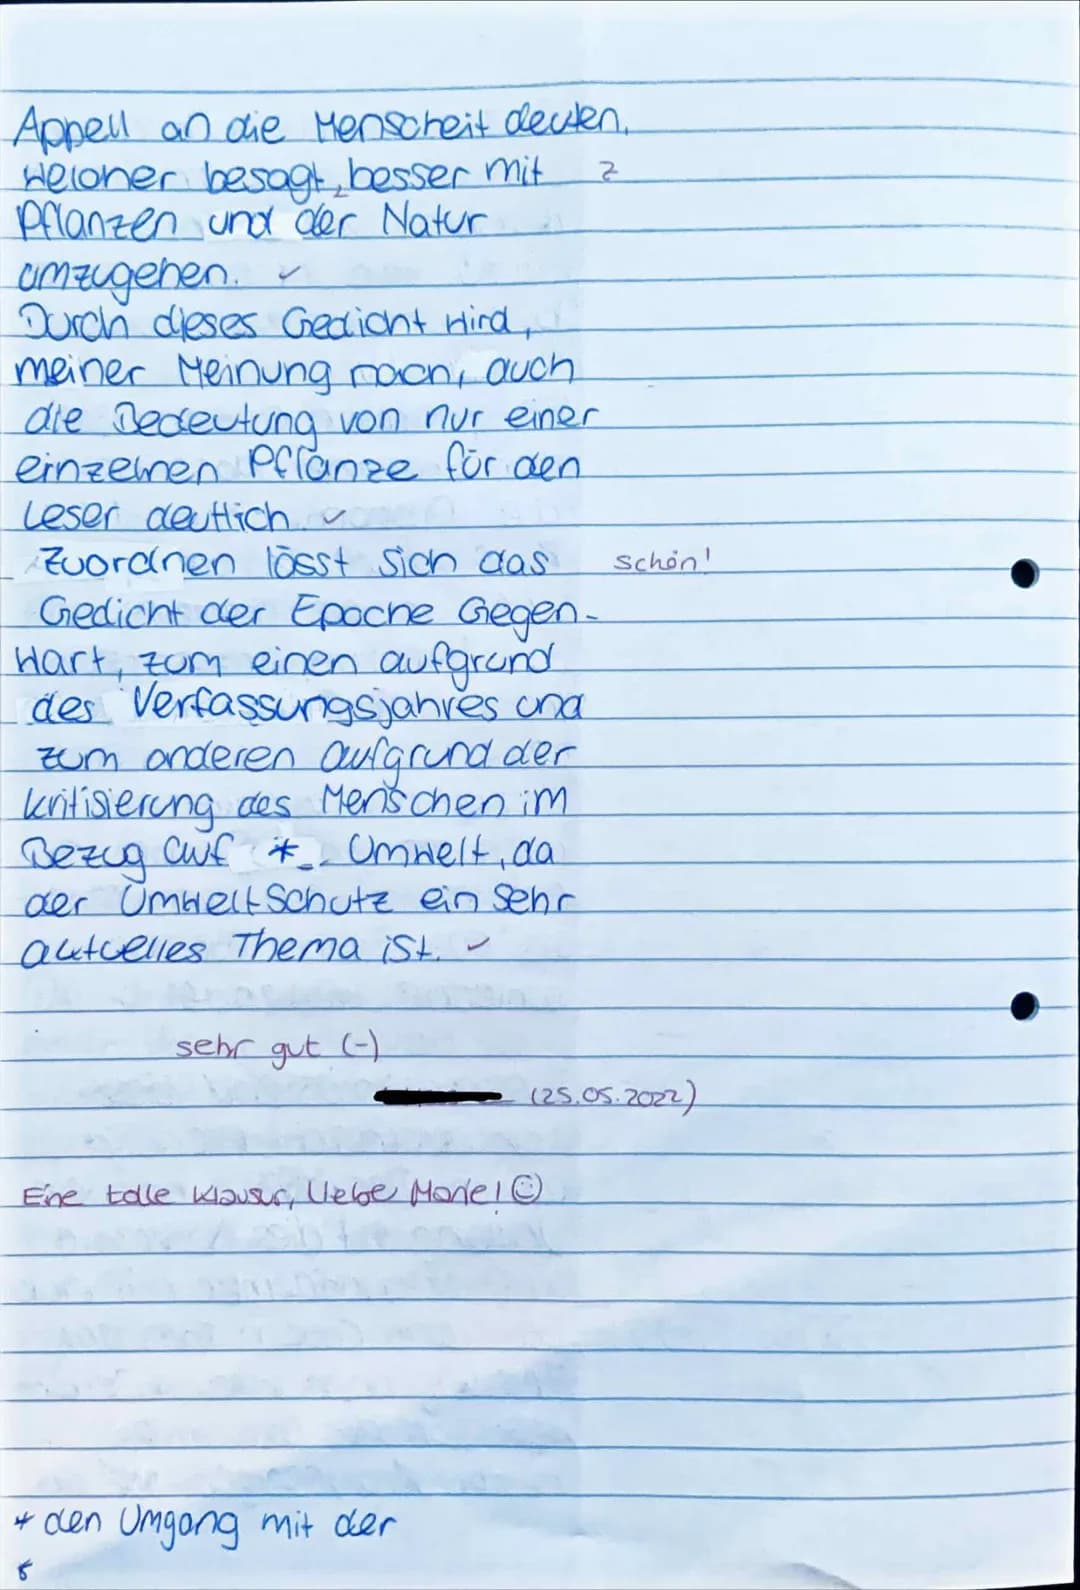 Appell an die Menscheit deuten,
welcher besagt, besser mit z
Pflanzen und der Natur
umzugehen. ✓
Durch dieses Gedicht wird,
meiner Meinung nach, auch
die Bedeutung von nur einer
einzelnen Pflanze für den
Leser deutlich. ✓
Zuordnen lässt sich das schön!
Gedicht der Epoche Gegen-
wart, zum einen aufgrund
des Verfassungsjahres und
zum anderen aufgrund der
kritisierung des Menschen im
Bezug auf * Umwelt, da
der Umweltschutz ein sehr
aktuelles Thema ist. ✓
sehr gut (-)
(25.05.2022)
Eine tolle Klausur, liebe Marie! ☺
* den Umgang mit der